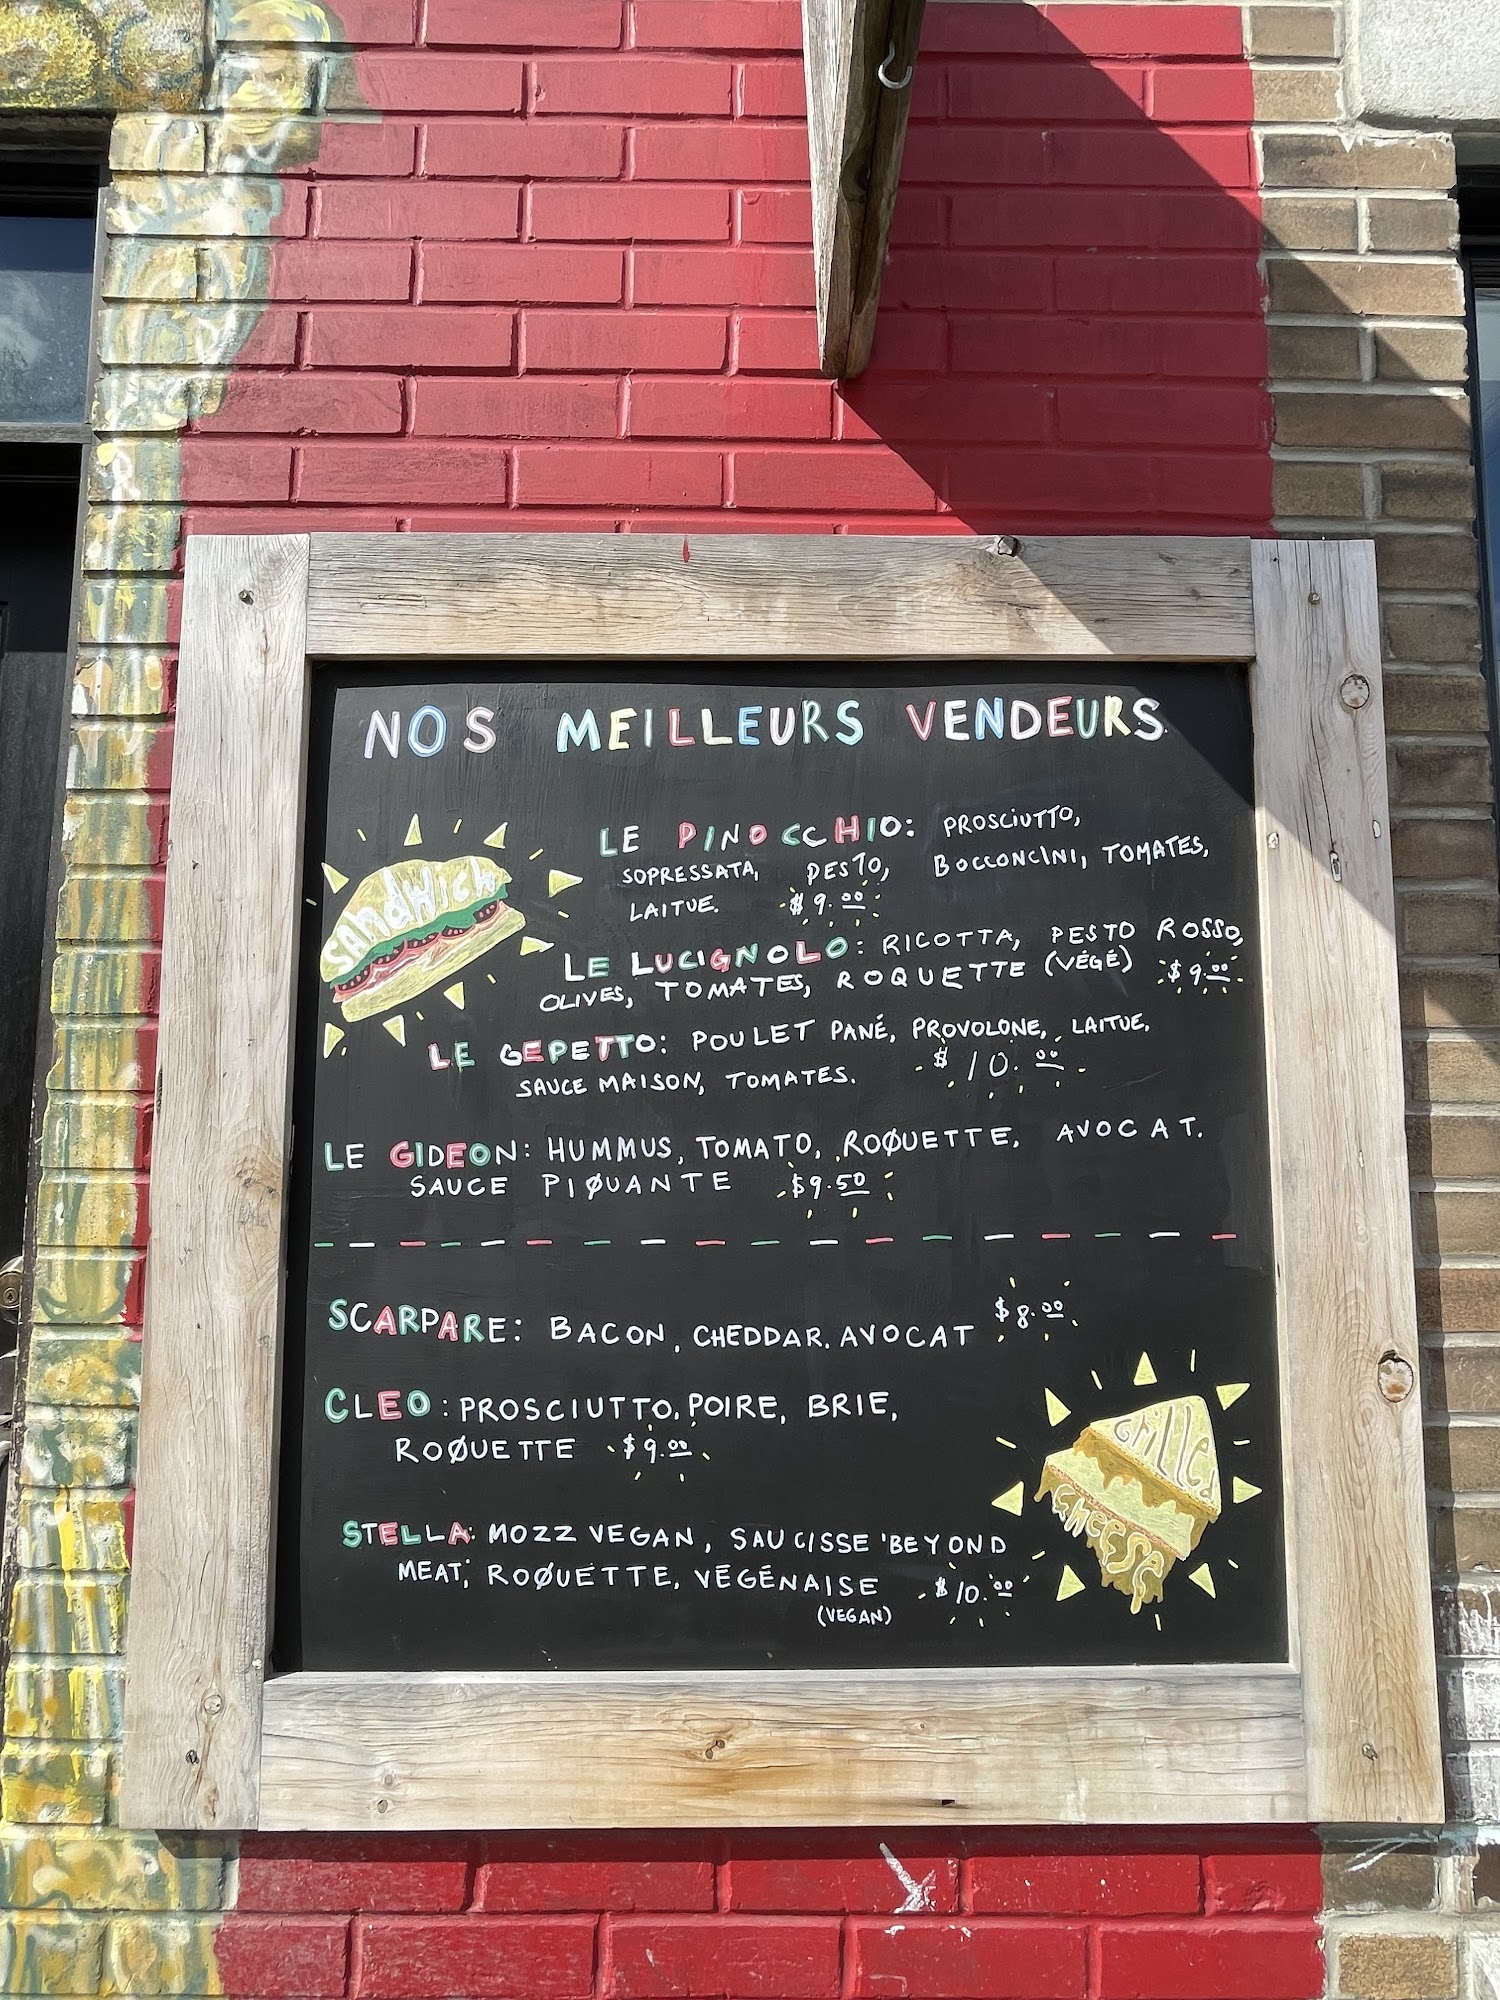 NOS MEILLEURS VENDEURS
SANDWICH
LE PINOCCHIO: PROSCIUTTO,
SOPRESSATA, PESTO, BOCCONCINI, TOMATES,
LAITUE. $9.00
LE LUCIGNOLO: RICOTTA, PESTO ROSSO,
OLIVES, TOMATES, ROQUETTE (VÉGÉ) $9.00
LE GEPETTO: POULET PANÉ, PROVOLONE, LAITUE,
SAUCE MAISON, TOMATES. $10.00
LE GIDEON: HUMMUS, TOMATO, ROQUETTE, AVOCAT.
SAUCE PIQUANTE $9.50
SCARPARE: BACON, CHEDDAR, AVOCAT $8.00
CLEO: PROSCIUTTO, POIRE, BRIE,
ROQUETTE $9.00
GRILLED
CHEESE
STELLA: MOZZ VEGAN, SAUCISSE 'BEYOND
MEAT', ROQUETTE, VÉGÉNAISE $10.00
(VEGAN)